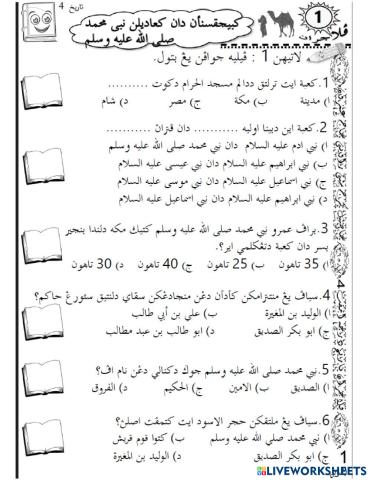 تاريخ 4
1
ڤلاجرن
كبيجقسنأن دان كعاديلن نبي محمد
صلى الله عليه وسلم
لاتيهن 1 : ڤيليه جواڤن يڠ بتول.
1. كعبة ايت ترلتق ددالم مسجد الحرام دكوت ..........
ا) مدينة ب) مكة ج) مصر د) شام
2. كعبة اين دبينا اوليه .......... دان ...........
ا) نبي ادم عليه السلام دان نبي محمد صلى الله عليه وسلم
ب) نبي ابراهيم عليه السلام دان نبي عيسى عليه السلام
ج) نبي اسماعيل عليه السلام دان نبي موسى عليه السلام
د) نبي ابراهيم عليه السلام دان نبي اسماعيل عليه السلام
3. براڤ عمرو نبي محمد صلى الله عليه وسلم كتيك مكه دلندا بنجير
بسر دان كعبة دتڠݢلمي اير؟.
ا) 35 تاهون ب) 25 تاهون ج) 40 تاهون د) 30 تاهون
4. سياڤ يڠ منتترامكن كأدأن دڠن منچادڠكن سڤاي دلنتيق سئورڠ حاكم؟
ا) الوليد بن المغيرة ب) علي بن أبي طالب
ج) ابو بكر الصديق د) ابو طالب بن عبد مطالب
5. نبي محمد صلى الله عليه وسلم جوݢ دكنالي دڠن نام اڤ؟
ا) الصديق ب) الامين ج) الحكيم د) الفروق
6. سياڤ يڠ ملتقكن حجر الاسود ايت كتمڤت اصلن؟
ا) نبي محمد صلى الله عليه وسلم ب) كتوا قوم قريش
ج) ابو بكر الصديق د) الوليد بن المغيرة
1
LIVEWORKSHEETS